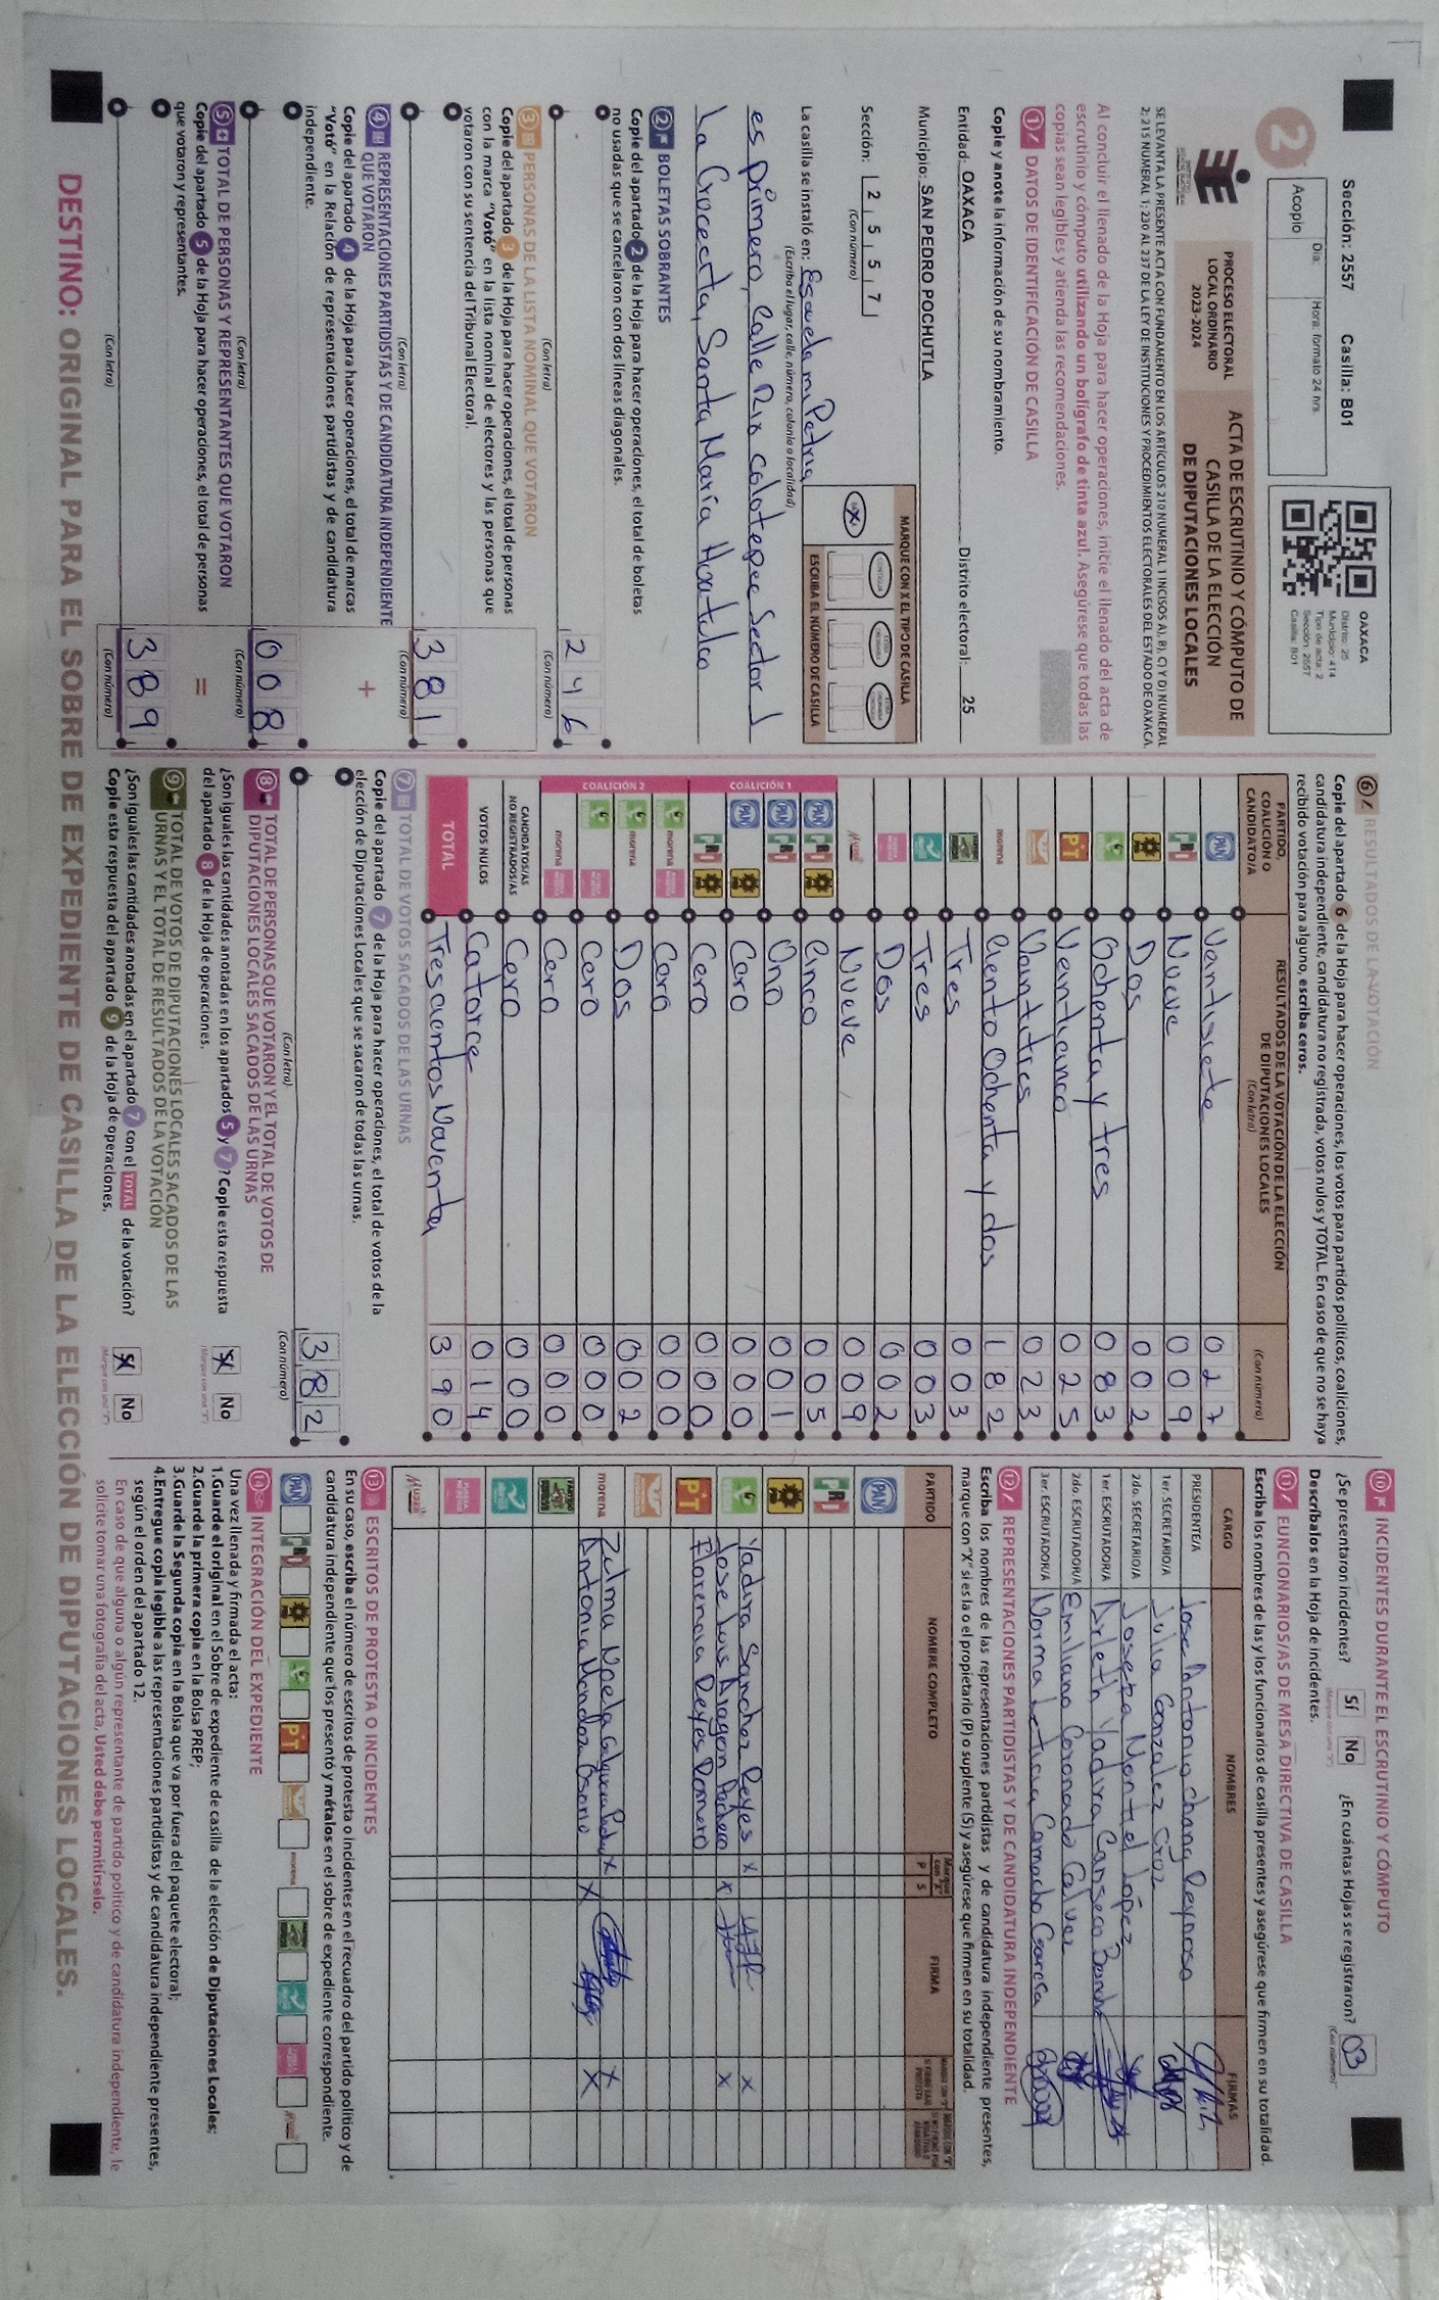 Sección: 2557 Casilla: B01
2
Día:
Hora: formato 24 hrs.
Acopio
OAXACA
Distrito: 25
Municipio: 414
Tipo de acta: 2
Sección: 2557
Casilla: B01
PROCESO ELECTORAL
LOCAL ORDINARIO
2023-2024
ACTA DE ESCRUTINIO Y CÓMPUTO DE
CASILLA DE LA ELECCIÓN
DE DIPUTACIONES LOCALES
SE LEVANTA LA PRESENTE ACTA CON FUNDAMENTO EN LOS ARTÍCULOS 210 NUMERAL 1 INCISOS A), B), C) Y D) NUMERAL
2; 215 NUMERAL 1; 230 AL 237 DE LA LEY DE INSTITUCIONES Y PROCEDIMIENTOS ELECTORALES DEL ESTADO DE OAXACA.
Al concluir el llenado de la Hoja para hacer operaciones, inicie el llenado del acta de
escrutinio y cómputo utilizando un bolígrafo de tinta azul. Asegúrese que todas las
copias sean legibles y atienda las recomendaciones.
1 DATOS DE IDENTIFICACIÓN DE CASILLA
Copie y anote la información de su nombramiento.
Entidad: OAXACA Distrito electoral: 25
Municipio: SAN PEDRO POCHUTLA
Sección: 2 5 5 7
(Con número)
MARQUE CON X EL TIPO DE CASILLA
ESCRIBA EL NÚMERO DE CASILLA
La casilla se instaló en: Escuela mi Patria
(Escriba el lugar, calle, número, colonia o localidad)
es primero, Calle Rio Colotepec Sector J
La Crucecita, Santa María Huatulco
2 BOLETAS SOBRANTES
Copie del apartado 2 de la Hoja para hacer operaciones, el total de boletas
no usadas que se cancelaron con dos líneas diagonales.
2 4 6
(Con letra) (Con número)
3 PERSONAS DE LA LISTA NOMINAL QUE VOTARON
Copie del apartado 3 de la Hoja para hacer operaciones, el total de personas
con la marca "Votó" en la lista nominal de electores y las personas que
votaron con su sentencia del Tribunal Electoral.
3 8 1
(Con letra) (Con número)
4 REPRESENTACIONES PARTIDISTAS Y DE CANDIDATURA INDEPENDIENTE
QUE VOTARON
+
Copie del apartado 4 de la Hoja para hacer operaciones, el total de marcas
"Votó" en la Relación de representaciones partidistas y de candidatura
independiente.
0 0 8
(Con letra) (Con número)
5 TOTAL DE PERSONAS Y REPRESENTANTES QUE VOTARON
=
Copie del apartado 5 de la Hoja para hacer operaciones, el total de personas
que votaron y representantes.
3 8 9
(Con letra) (Con número)
6 RESULTADOS DE LA VOTACIÓN
Copie del apartado 6 de la Hoja para hacer operaciones, los votos para partidos políticos, coaliciones,
candidatura independiente, candidatura no registrada, votos nulos y TOTAL. En caso de que no se haya
recibido votación para alguno, escriba ceros.
PARTIDO,
COALICIÓN O
CANDIDATO/A
RESULTADOS DE LA VOTACIÓN DE LA ELECCIÓN
DE DIPUTACIONES LOCALES
(Con letra)
(Con número)
PAN Ventisiete 0 2 7
PRI Nueve 0 0 9
Dos 0 0 2
Ochenta y tres 0 8 3
PT Venticinco 0 2 5
Veintitres 0 2 3
morena Ciento Ochenta y dos 1 8 2
Tres 0 0 3
Tres 0 0 3
Dos 0 0 2
Nueve 0 0 9
COALICIÓN 1
PAN PRI Cinco 0 0 5
PAN PRI Uno 0 0 1
PAN Cero 0 0 0
PRI Cero 0 0 0
COALICIÓN 2
morena Cero 0 0 0
morena Dos 0 0 2
Cero 0 0 0
morena Cero 0 0 0
CANDIDATOS/AS
NO REGISTRADOS/AS Cero 0 0 0
VOTOS NULOS Catorce 0 1 4
TOTAL Tres cientos Noventa 3 9 0
7 TOTAL DE VOTOS SACADOS DE LAS URNAS
Copie del apartado 7 de la Hoja para hacer operaciones, el total de votos de la
elección de Diputaciones Locales que se sacaron de todas las urnas.
3 8 2
(Con letra) (Con número)
8 TOTAL DE PERSONAS QUE VOTARON Y EL TOTAL DE VOTOS DE
DIPUTACIONES LOCALES SACADOS DE LAS URNAS
¿Son iguales las cantidades anotadas en los apartados 5 y 7? Copie esta respuesta
del apartado 8 de la Hoja de operaciones.
Sí No
9 TOTAL DE VOTOS DE DIPUTACIONES LOCALES SACADOS DE LAS
URNAS Y EL TOTAL DE RESULTADOS DE LA VOTACIÓN
¿Son iguales las cantidades anotadas en el apartado 7 con el TOTAL de la votación?
Copie esta respuesta del apartado 9 de la Hoja de operaciones.
Sí No
10 INCIDENTES DURANTE EL ESCRUTINIO Y CÓMPUTO
¿Se presentaron incidentes? Sí No ¿En cuántas Hojas se registraron? 03
Descríbalos en la Hoja de incidentes.
11 FUNCIONARIOS/AS DE MESA DIRECTIVA DE CASILLA
Escriba los nombres de las y los funcionarios de casilla presentes y asegúrese que firmen en su totalidad.
CARGO NOMBRES FIRMAS
PRESIDENTE/A Jose Antonio Chang Reynoso
1er. SECRETARIO/A Julia Gonzalez Cruz
2do. SECRETARIO/A Josefa Montiel López
1er. ESCRUTADOR/A Arleth Yadira Canseco
2do. ESCRUTADOR/A Emiliano Coronado Galvez
3er. ESCRUTADOR/A Norma Leticia Camacho Garcia
12 REPRESENTACIONES PARTIDISTAS Y DE CANDIDATURA INDEPENDIENTE
Escriba los nombres de las representaciones partidistas y de candidatura independiente presentes,
marque con "X" si es la o el propietario (P) o suplente (S) y asegúrese que firmen en su totalidad.
PARTIDO NOMBRE COMPLETO P S FIRMA
PAN
PRI
Yadira Sanchez Reyes x x
Jose Luis Aragon Pacheco x x
PT Florencia Reyes Romero
morena Zulma x x
Antonia Mendoza Osorio x x
13 ESCRITOS DE PROTESTA O INCIDENTES
En su caso, escriba el número de escritos de protesta o incidentes en el recuadro del partido político y de
candidatura independiente que los presentó y métalos en el sobre de expediente correspondiente.
PAN PRI PT morena
14 INTEGRACIÓN DEL EXPEDIENTE
Una vez llenada y firmada el acta:
1.Guarde el original en el Sobre de expediente de casilla de la elección de Diputaciones Locales;
2.Guarde la primera copia en la Bolsa PREP;
3.Guarde la Segunda copia en la Bolsa que va por fuera del paquete electoral;
4.Entregue copia legible a las representaciones partidistas y de candidatura independiente presentes,
según el orden del apartado 12.
En caso de que alguna o algún representante de partido político y de candidatura independiente, le
solicite tomar una fotografía del acta, Usted debe permitírselo.
DESTINO: ORIGINAL PARA EL SOBRE DE EXPEDIENTE DE CASILLA DE LA ELECCIÓN DE DIPUTACIONES LOCALES.